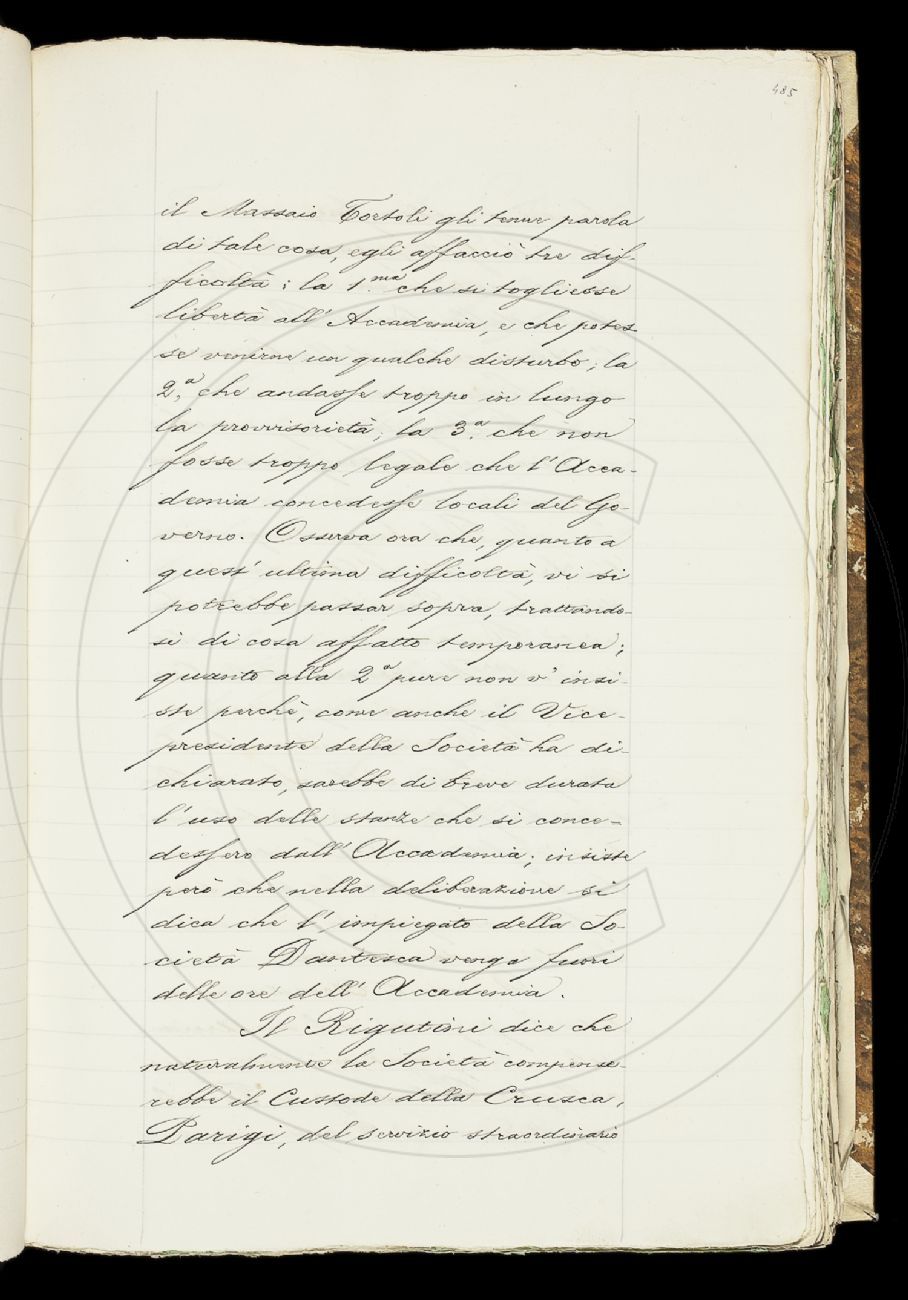 485
il Massaio Tortoli gli tenne parola
di tale cosa, egli affacciò tre dif-
ficoltà: la 1.ma che si togliesse
libertà all'Accademia, e che potes-
se venirne un qualche disturbo; la
2.a che andasse troppo in lungo
la provvisorietà; la 3.a che non
fosse troppo legale che l'Acca-
demia concedesse locali del Go-
verno. Osserva ora che, quanto a
quest'ultima difficoltà, vi si
potrebbe passar sopra, trattando-
si di cosa affatto temporanea;
quanto alla 2a pure non v'insi-
ste perchè, come anche il Vice-
presidente della Società ha di-
chiarato, sarebbe di breve durata
l'uso delle stanze che si conce-
dessero dall'Accademia; insiste
però che nella deliberazione si
dica che l'impiegato della So-
cietà Dantesca venga fuori
delle ore dell'Accademia.
Il Rigutini dice che
naturalmente la Società compense-
rebbe il Custode della Crusca,
Parigi, del servizio straordinario